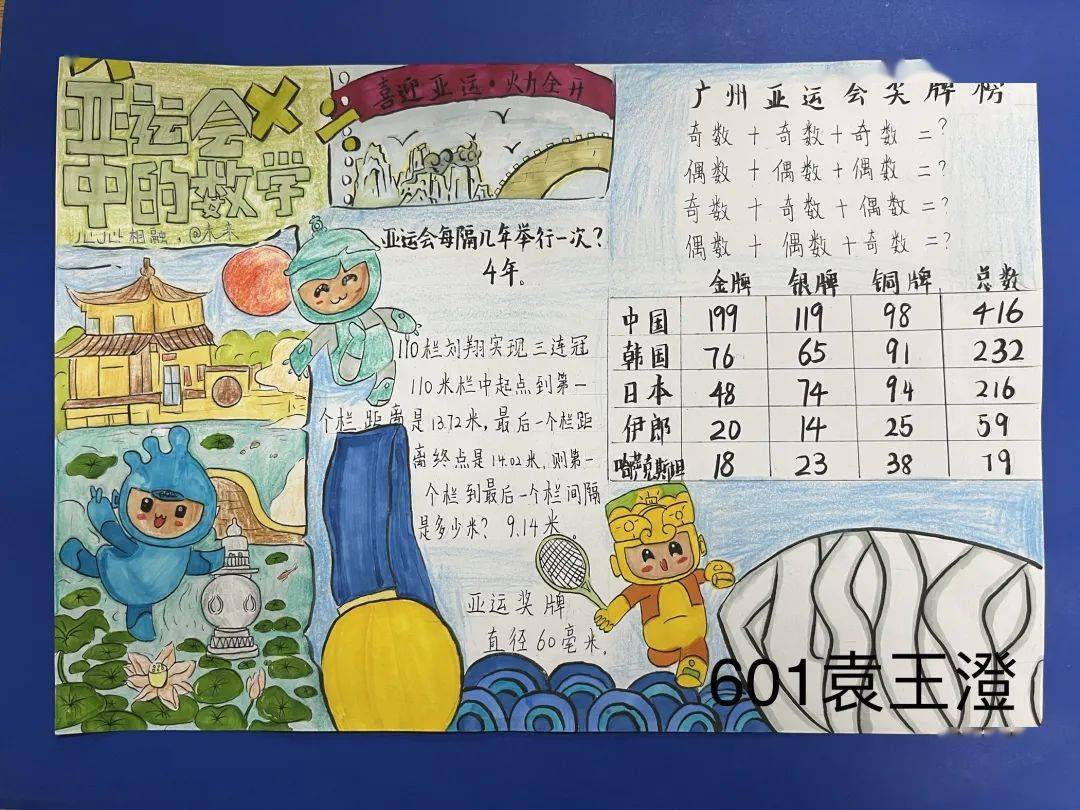 亚运会
中的数学
心心相融，@未来
喜迎亚运·火力全开
亚运会每隔几年举行一次？
4年。
110栏刘翔实现三连冠
110米栏中起点到第一
个栏距离是13.72米，最后一个栏距
离终点是14.02米，则第一
个栏到最后一个栏间隔
是多少米？9.14米。
亚运奖牌
直径60毫米。
广州亚运会奖牌榜
奇数＋奇数＋奇数＝？
偶数＋偶数＋偶数＝？
奇数＋奇数＋偶数＝？
偶数＋偶数＋奇数＝？
金牌 银牌 铜牌 总数
中国 199 119 98 416
韩国 76 65 91 232
日本 48 74 94 216
伊郎 20 14 25 59
哈萨克斯坦 18 23 38 79
601袁王澄